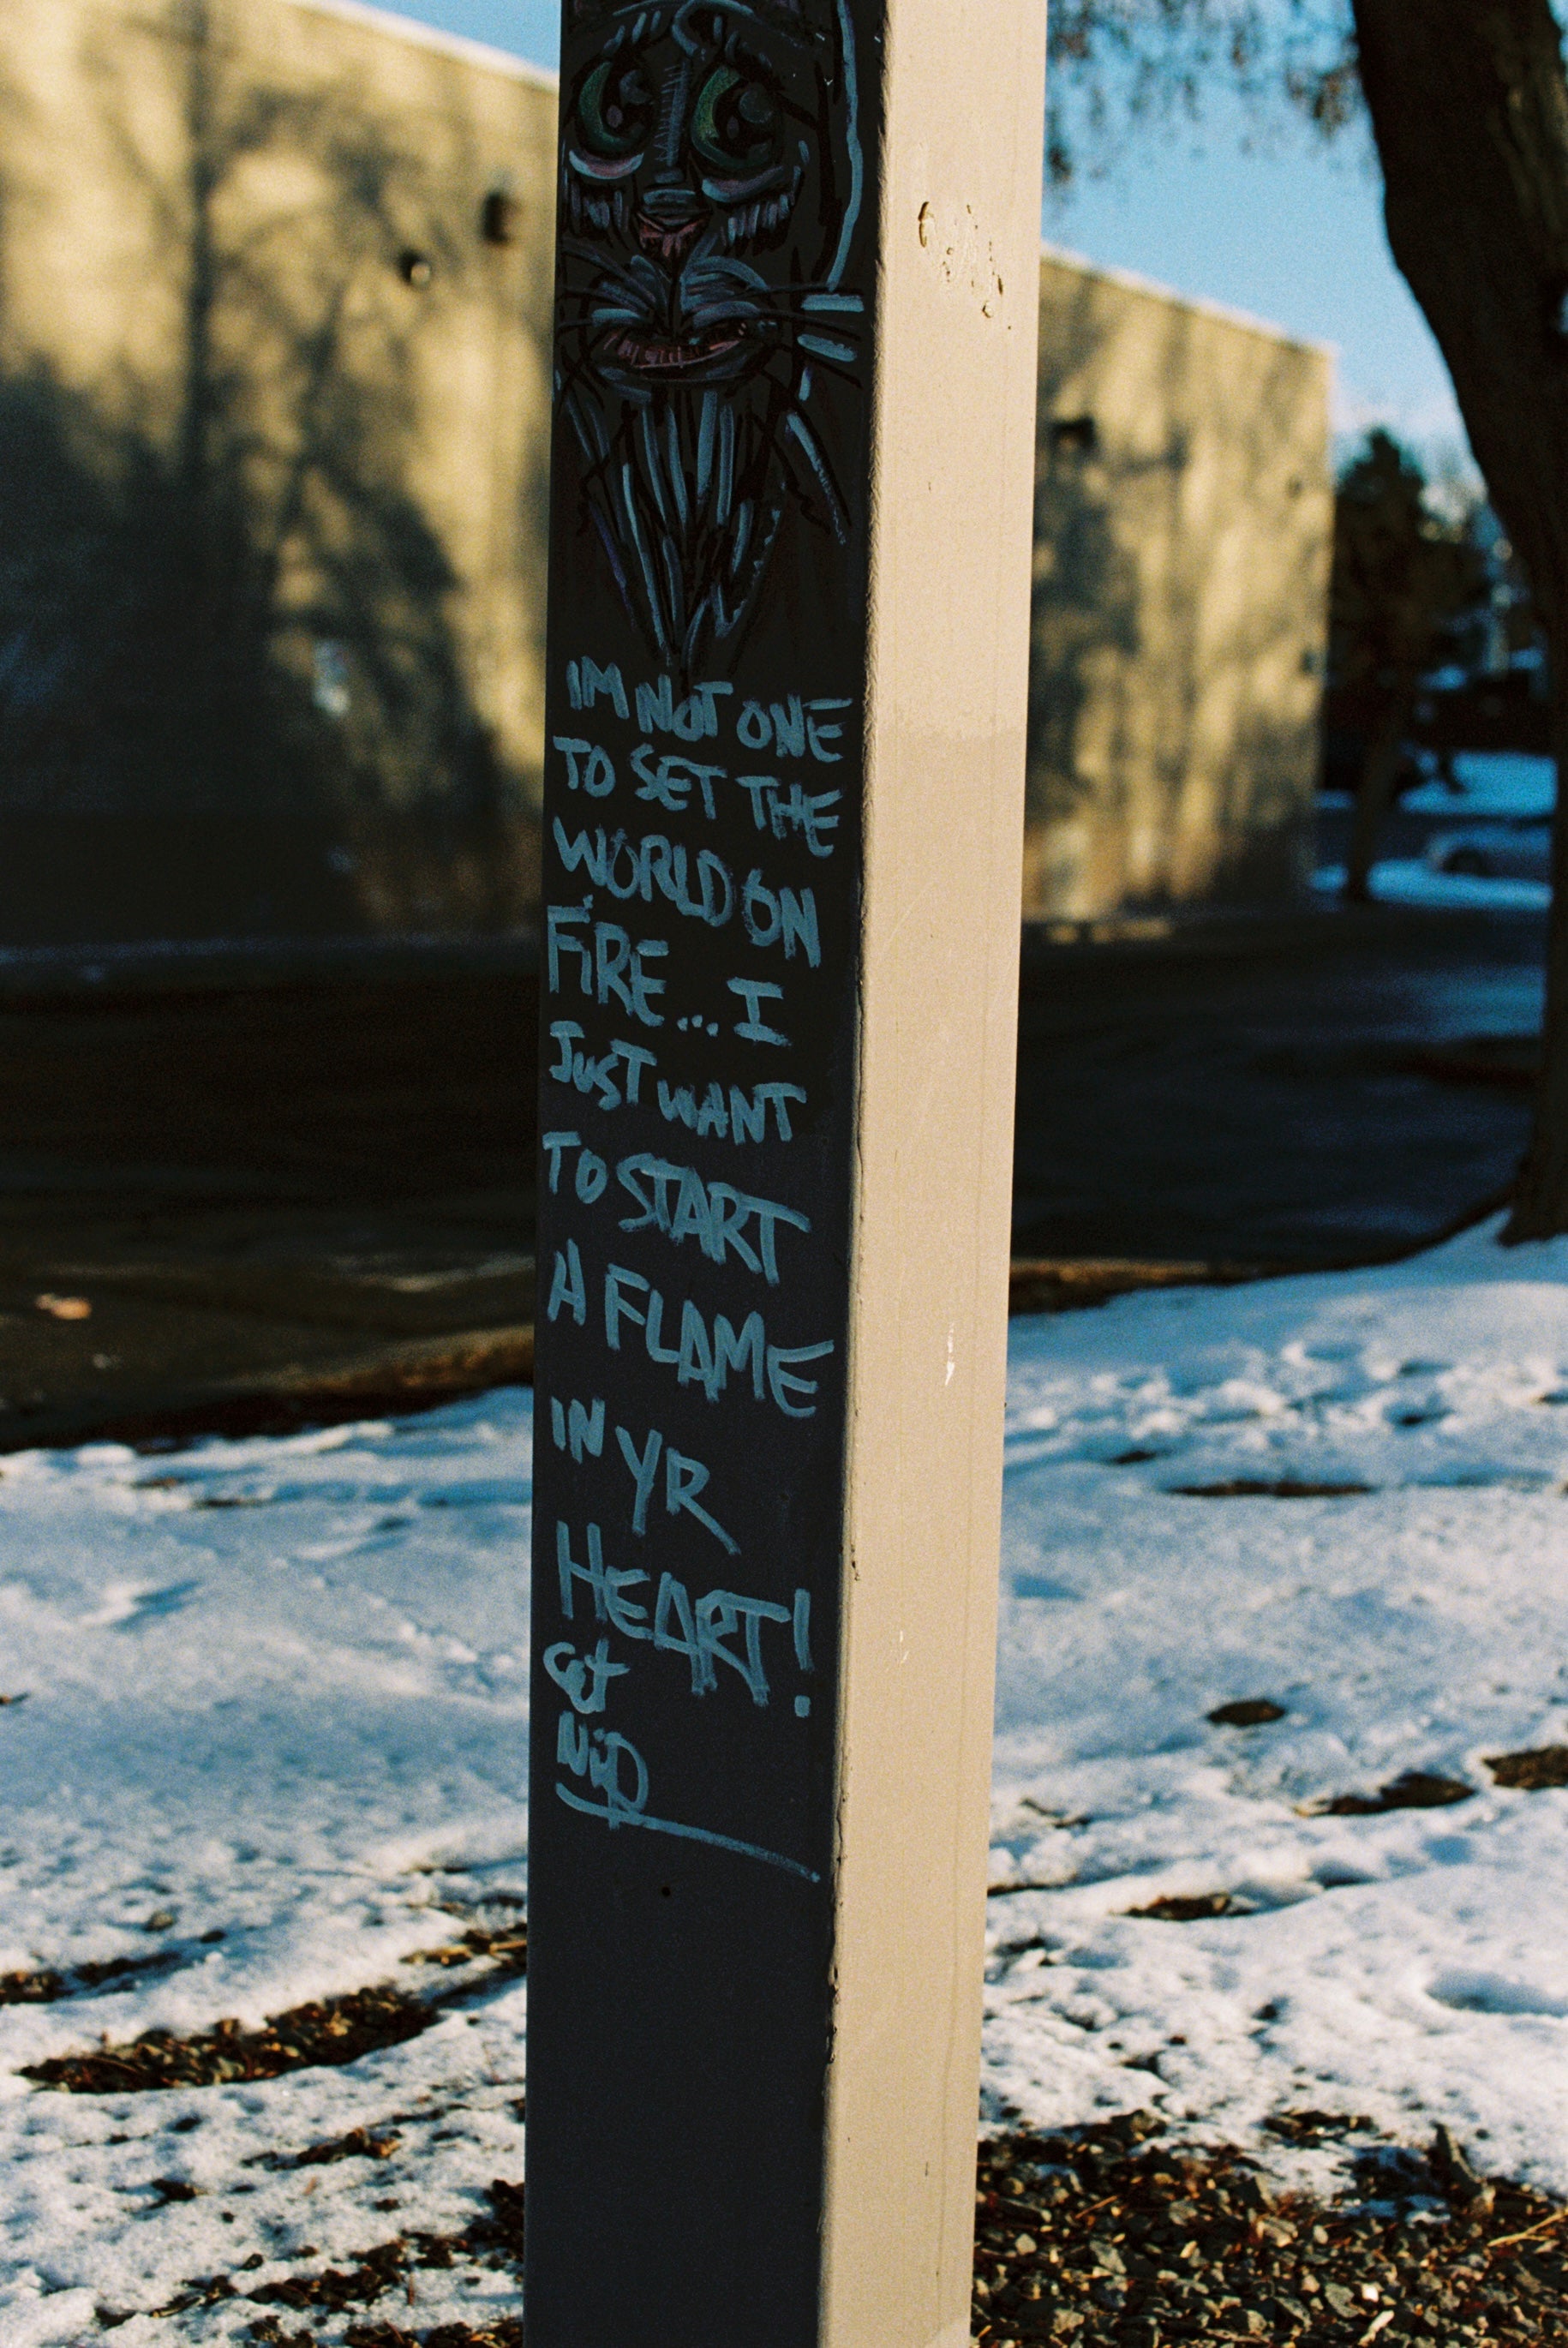 IM NOT ONE
TO SET THE
WORLD ON
FIRE... I
JUST WANT
TO START
A FLAME
IN YR
HEART!
Cat
NiP